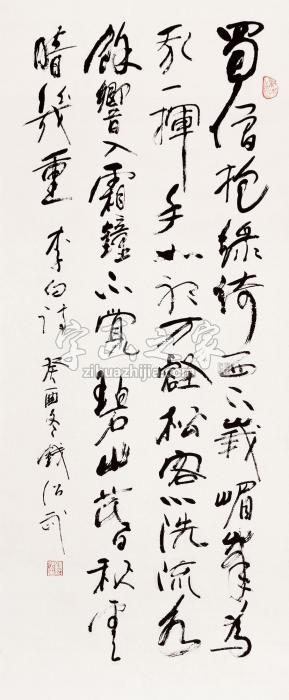 蜀僧抱綠綺西下峨嵋峯為
我一揮手如聽万壑松客心洗流水
餘響入霜鐘不覺碧山暮秋雲
暗幾重 李白詩 癸酉冬錢紹武
字画之家
zihuazhijia.com